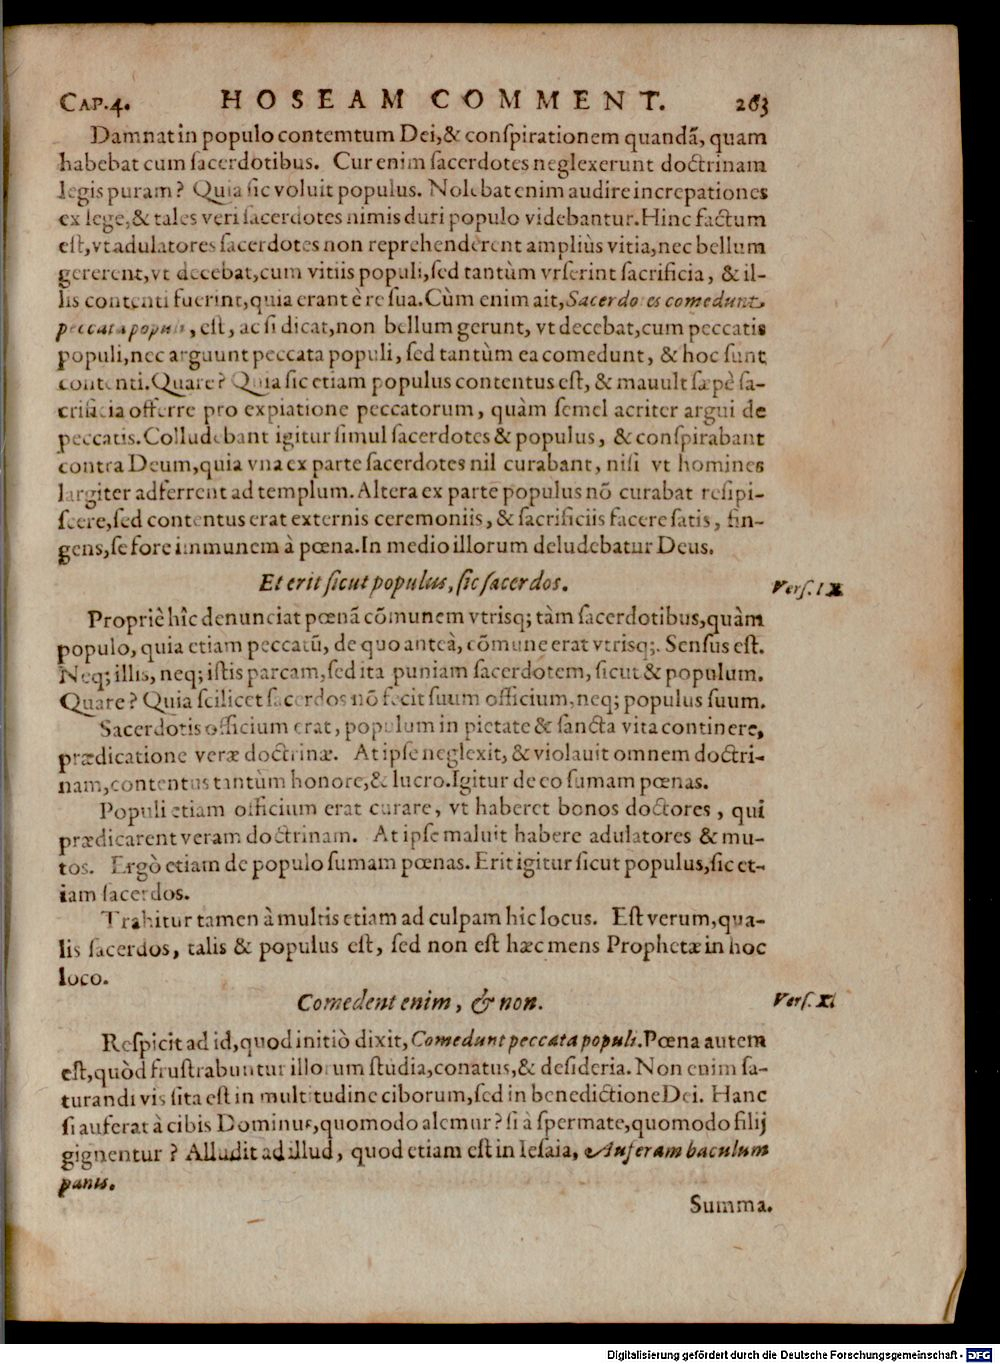 CAP.4. HOSEAM COMMENT. 263
Damnat in populo contemtum Dei,& conſpirationem quandã, quam
habebat cum ſacerdotibus. Cur enim ſacerdotes neglexerunt doctrinam
legis puram? Quia ſic voluit populus. Nolebat enim audire increpationes
ex lege,& tales veri ſacerdotes nimis duri populo videbantur. Hinc factum
eſt,vt adulatores ſacerdotes non reprehenderent ampliùs vitia,nec bellum
gererent,vt decebat,cum vitiis populi,ſed tantùm vrſerint ſacrificia, & il-
lis contenti fuerint,quia erant è re ſua. Cùm enim ait, Sacerdotes comedunt
peccata populi, eſt, ac ſi dicat,non bellum gerunt, vt decebat,cum peccatis
populi,nec arguunt peccata populi, ſed tantùm ea comedunt, & hoc ſunt
contenti. Quare? Quia ſic etiam populus contentus eſt, & mauult ſæpè ſa-
crificia offerre pro expiatione peccatorum, quàm ſemel acriter argui de
peccatis. Colludebant igitur ſimul ſacerdotes & populus, & conſpirabant
contra Deum,quia vna ex parte ſacerdotes nil curabant, niſi vt homines
largiter adferrent ad templum. Altera ex parte populus nõ curabat reſipi-
ſcere,ſed contentus erat externis ceremoniis, & ſacrificiis facere ſatis, fin-
gens,ſe fore immunem à pœna. In medio illorum deludebatur Deus.
Et erit ſicut populus, ſic ſacerdos. Verſ. IX
Propriè hîc denunciat pœnã cõmunem vtrisq; tàm ſacerdotibus,quàm
populo, quia etiam peccatũ, de quo anteà, cõmune erat vtrisq;. Senſus eſt.
Neq; illis, neq; iſtis parcam,ſed ita puniam ſacerdotem, ſicut & populum.
Quare? Quia ſcilicet ſacerdos nõ fecit ſuum officium,neq; populus ſuum.
Sacerdotis officium erat, populum in pietate & ſancta vita continere,
prædicatione veræ doctrinæ. At ipſe neglexit, & violauit omnem doctri-
nam,contentus tantùm honore,& lucro. Igitur de eo ſumam pœnas.
Populi etiam officium erat curare, vt haberet bonos doctores, qui
prædicarent veram doctrinam. At ipſe maluit habere adulatores & mu-
tos. Ergò etiam de populo ſumam pœnas. Erit igitur ſicut populus,ſic et-
iam ſacerdos.
Trahitur tamen à multis etiam ad culpam hic locus. Eſt verum,qua-
lis ſacerdos, talis & populus eſt, ſed non eſt hæc mens Prophetæ in hoc
loco.
Comedent enim, & non. Verſ. XI
Reſpicit ad id,quod initiò dixit, Comedunt peccata populi. Pœna autem
eſt,quòd fruſtrabuntur illorum ſtudia,conatus,& deſideria. Non enim ſa-
turandi vis ſita eſt in multitudine ciborum,ſed in benedictione Dei. Hanc
ſi auferat à cibis Dominus,quomodo alemur? ſi à ſpermate,quomodo filij
gignentur? Alludit ad illud, quod etiam eſt in Ieſaia, Auferam baculum
panis.
Summa.
Digitalisierung gefördert durch die Deutsche Forschungsgemeinschaft - DFG